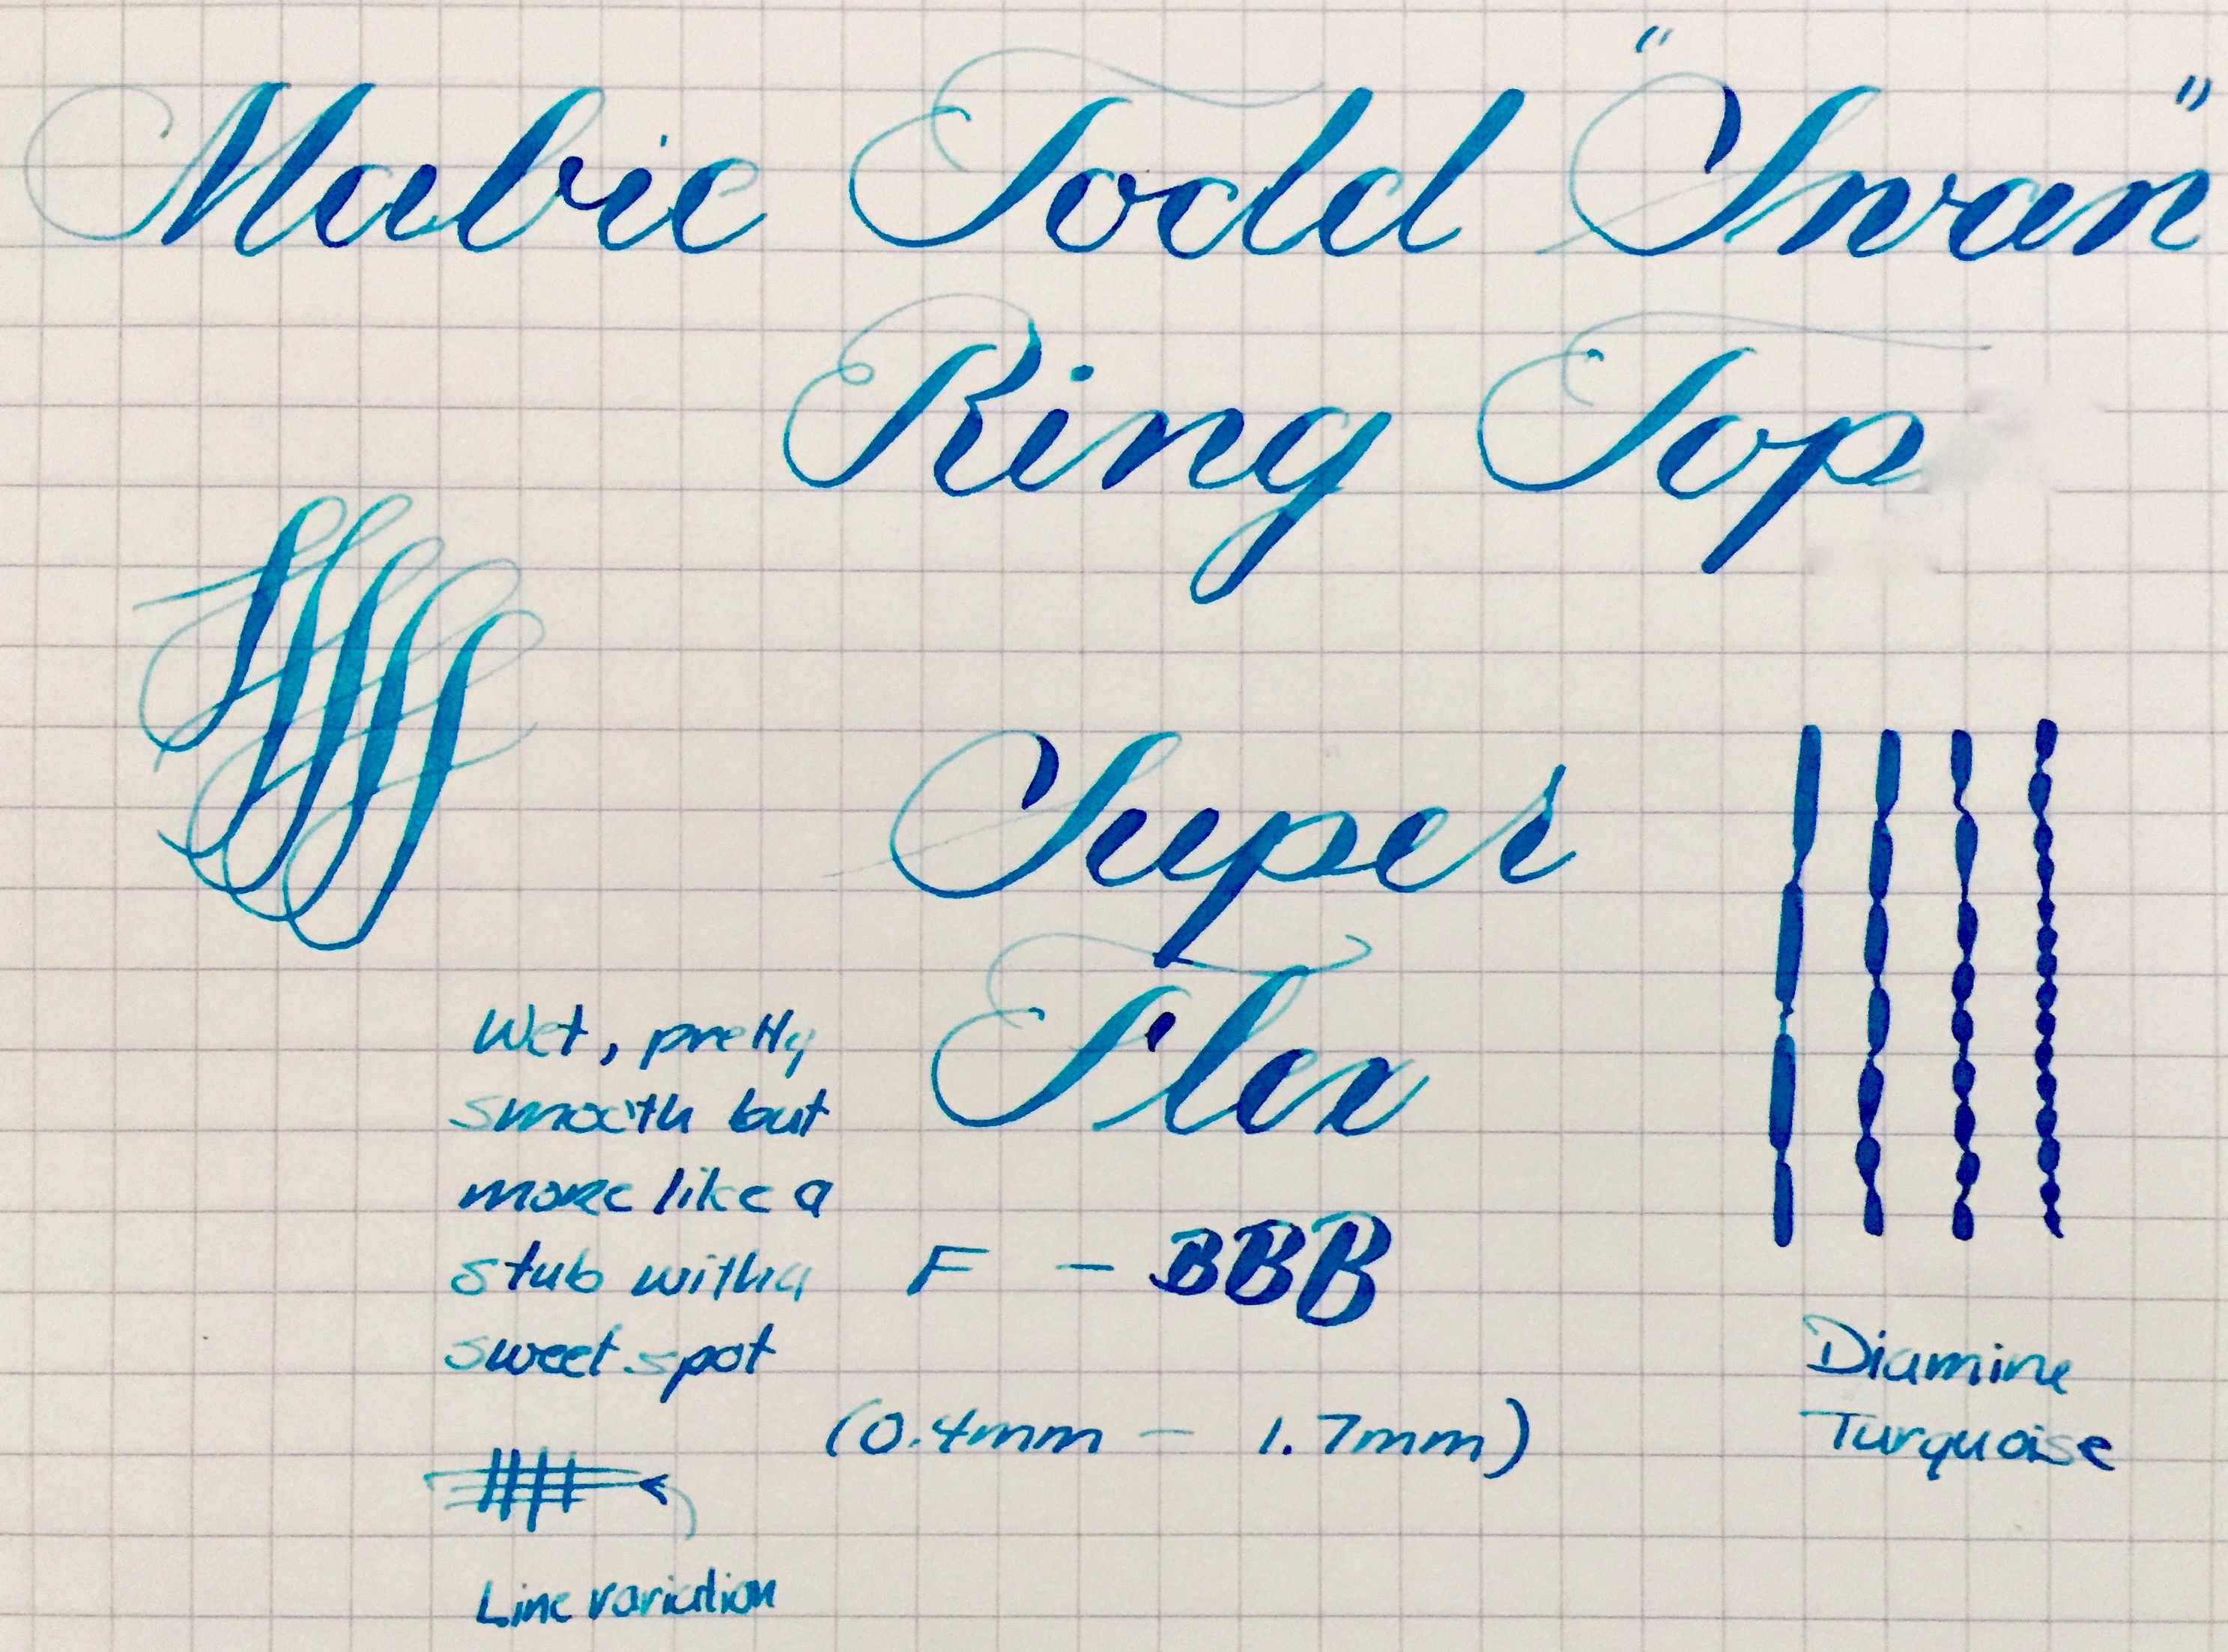 Mabie Todd "Swan"
Ring Top
Super
Flex
Wet, pretty
smooth but
more like a
stub with a
sweet spot
F - BBB
(0.4mm - 1.7mm)
Line variation
Diamine
Turquoise